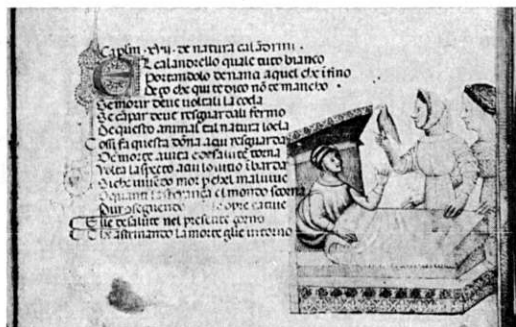 Caplm. xvii. de natura calādrini.
El calandrello quale tuto bianco
Portandolo denanti aquel che ifino
De ço che qui te dico nō te mancho
Se morir deue voltali la coda
Se cāpar deue resguardali fermo
De questo animal tal natura loda
Cossi fa questa dōna a qui resguarda
De morte aiuta e de salute torna
Volta laspecto a qui lo uitio ibarda
Siche viuēdo mor
el mondo scorna
Pur seguendo le ovre catiue
Elle de salute nel presente corno
Che astinando la morte glie intorno